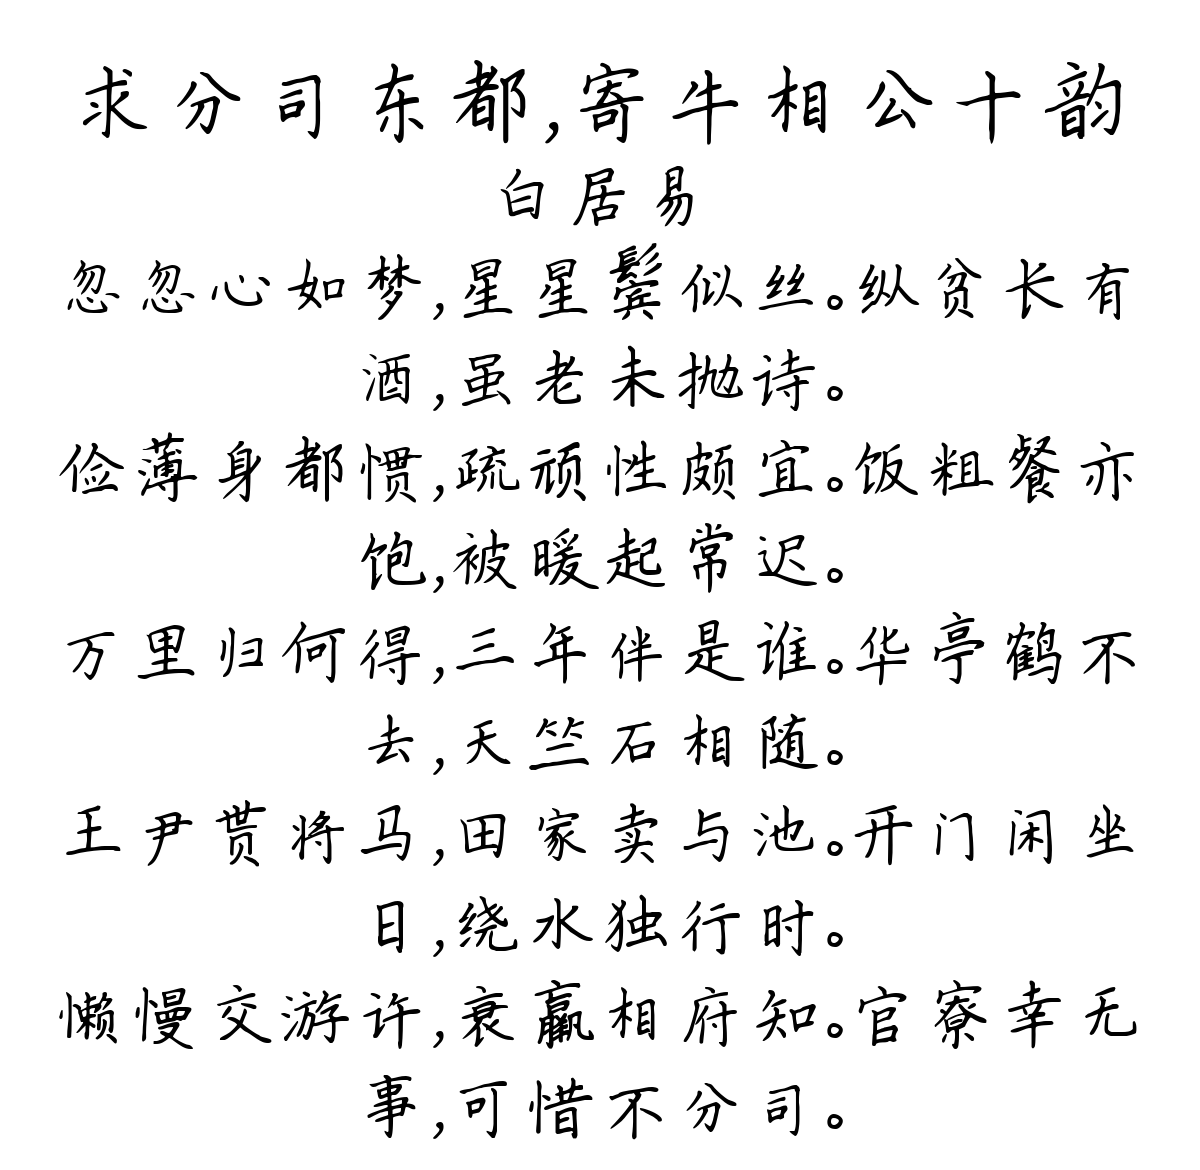 求分司东都,寄牛相公十韵
白居易
忽忽心如梦,星星鬓似丝。纵贫长有
酒,虽老未抛诗。
俭薄身都惯,疏顽性颇宜。饭粗餐亦
饱,被暖起常迟。
万里归何得,三年伴是谁。华亭鹤不
去,天竺石相随。
王尹贳将马,田家卖与池。开门闲坐
日,绕水独行时。
懒慢交游许,衰羸相府知。官寮幸无
事,可惜不分司。